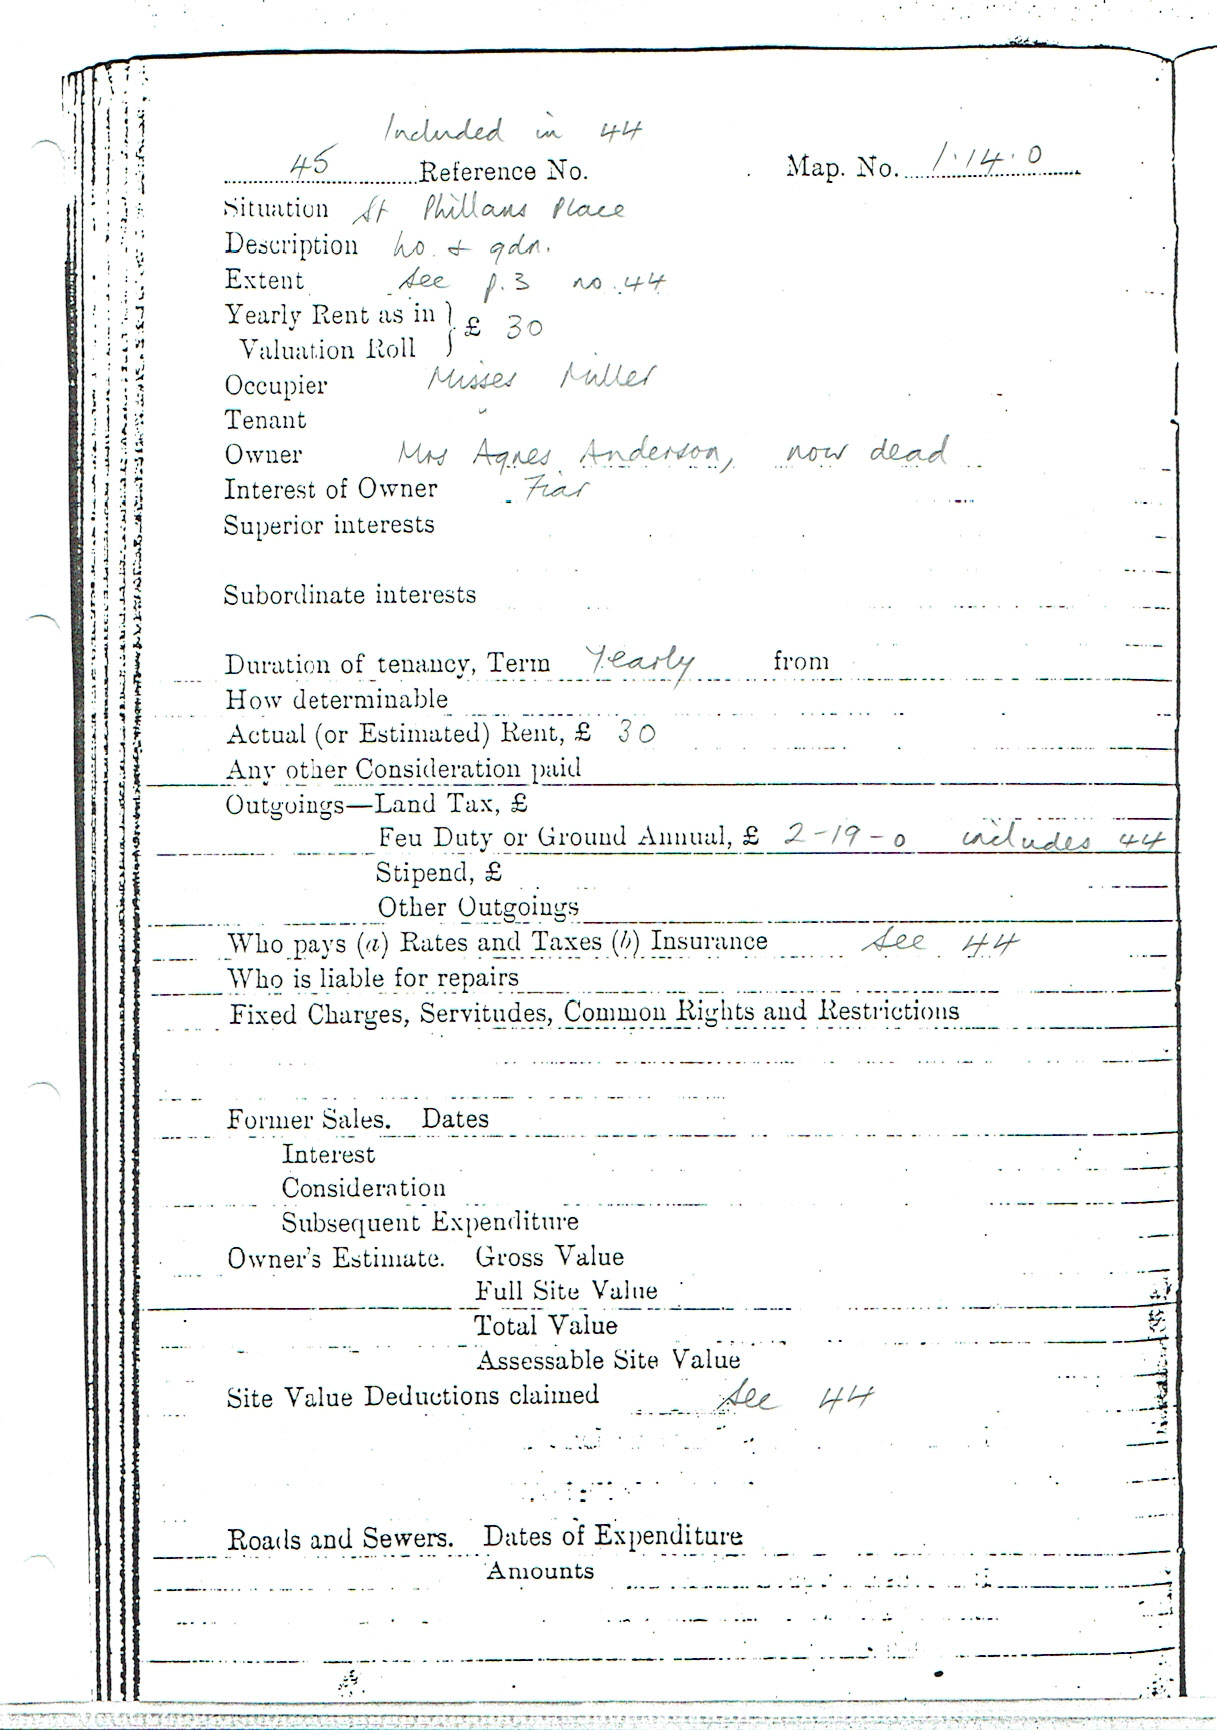 Included in 44
45 Reference No. Map. No. 1.14.0
Situation St Phillans Place
Description ho. & gdn.
Extent see p.3 no.44
Yearly Rent as in
Valuation Roll } £ 30
Occupier Misses Miller
Tenant "
Owner Mrs Agnes Anderson, now dead
Interest of Owner Fiar
Superior interests
Subordinate interests
Duration of tenancy, Term Yearly from
How determinable
Actual (or Estimated) Rent, £ 30
Any other Consideration paid
Outgoings—Land Tax, £
Feu Duty or Ground Annual, £ 2-19-0 includes 44
Stipend, £
Other Outgoings
Who pays (a) Rates and Taxes (b) Insurance See 44
Who is liable for repairs
Fixed Charges, Servitudes, Common Rights and Restrictions
Former Sales. Dates
Interest
Consideration
Subsequent Expenditure
Owner's Estimate. Gross Value
Full Site Value
Total Value
Assessable Site Value
Site Value Deductions claimed See 44
Roads and Sewers. Dates of Expenditure
Amounts